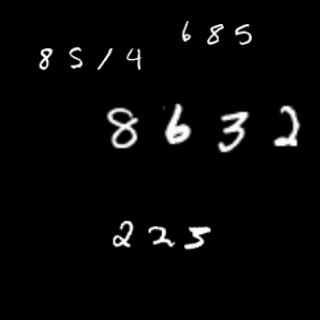 685
8514
8632
225